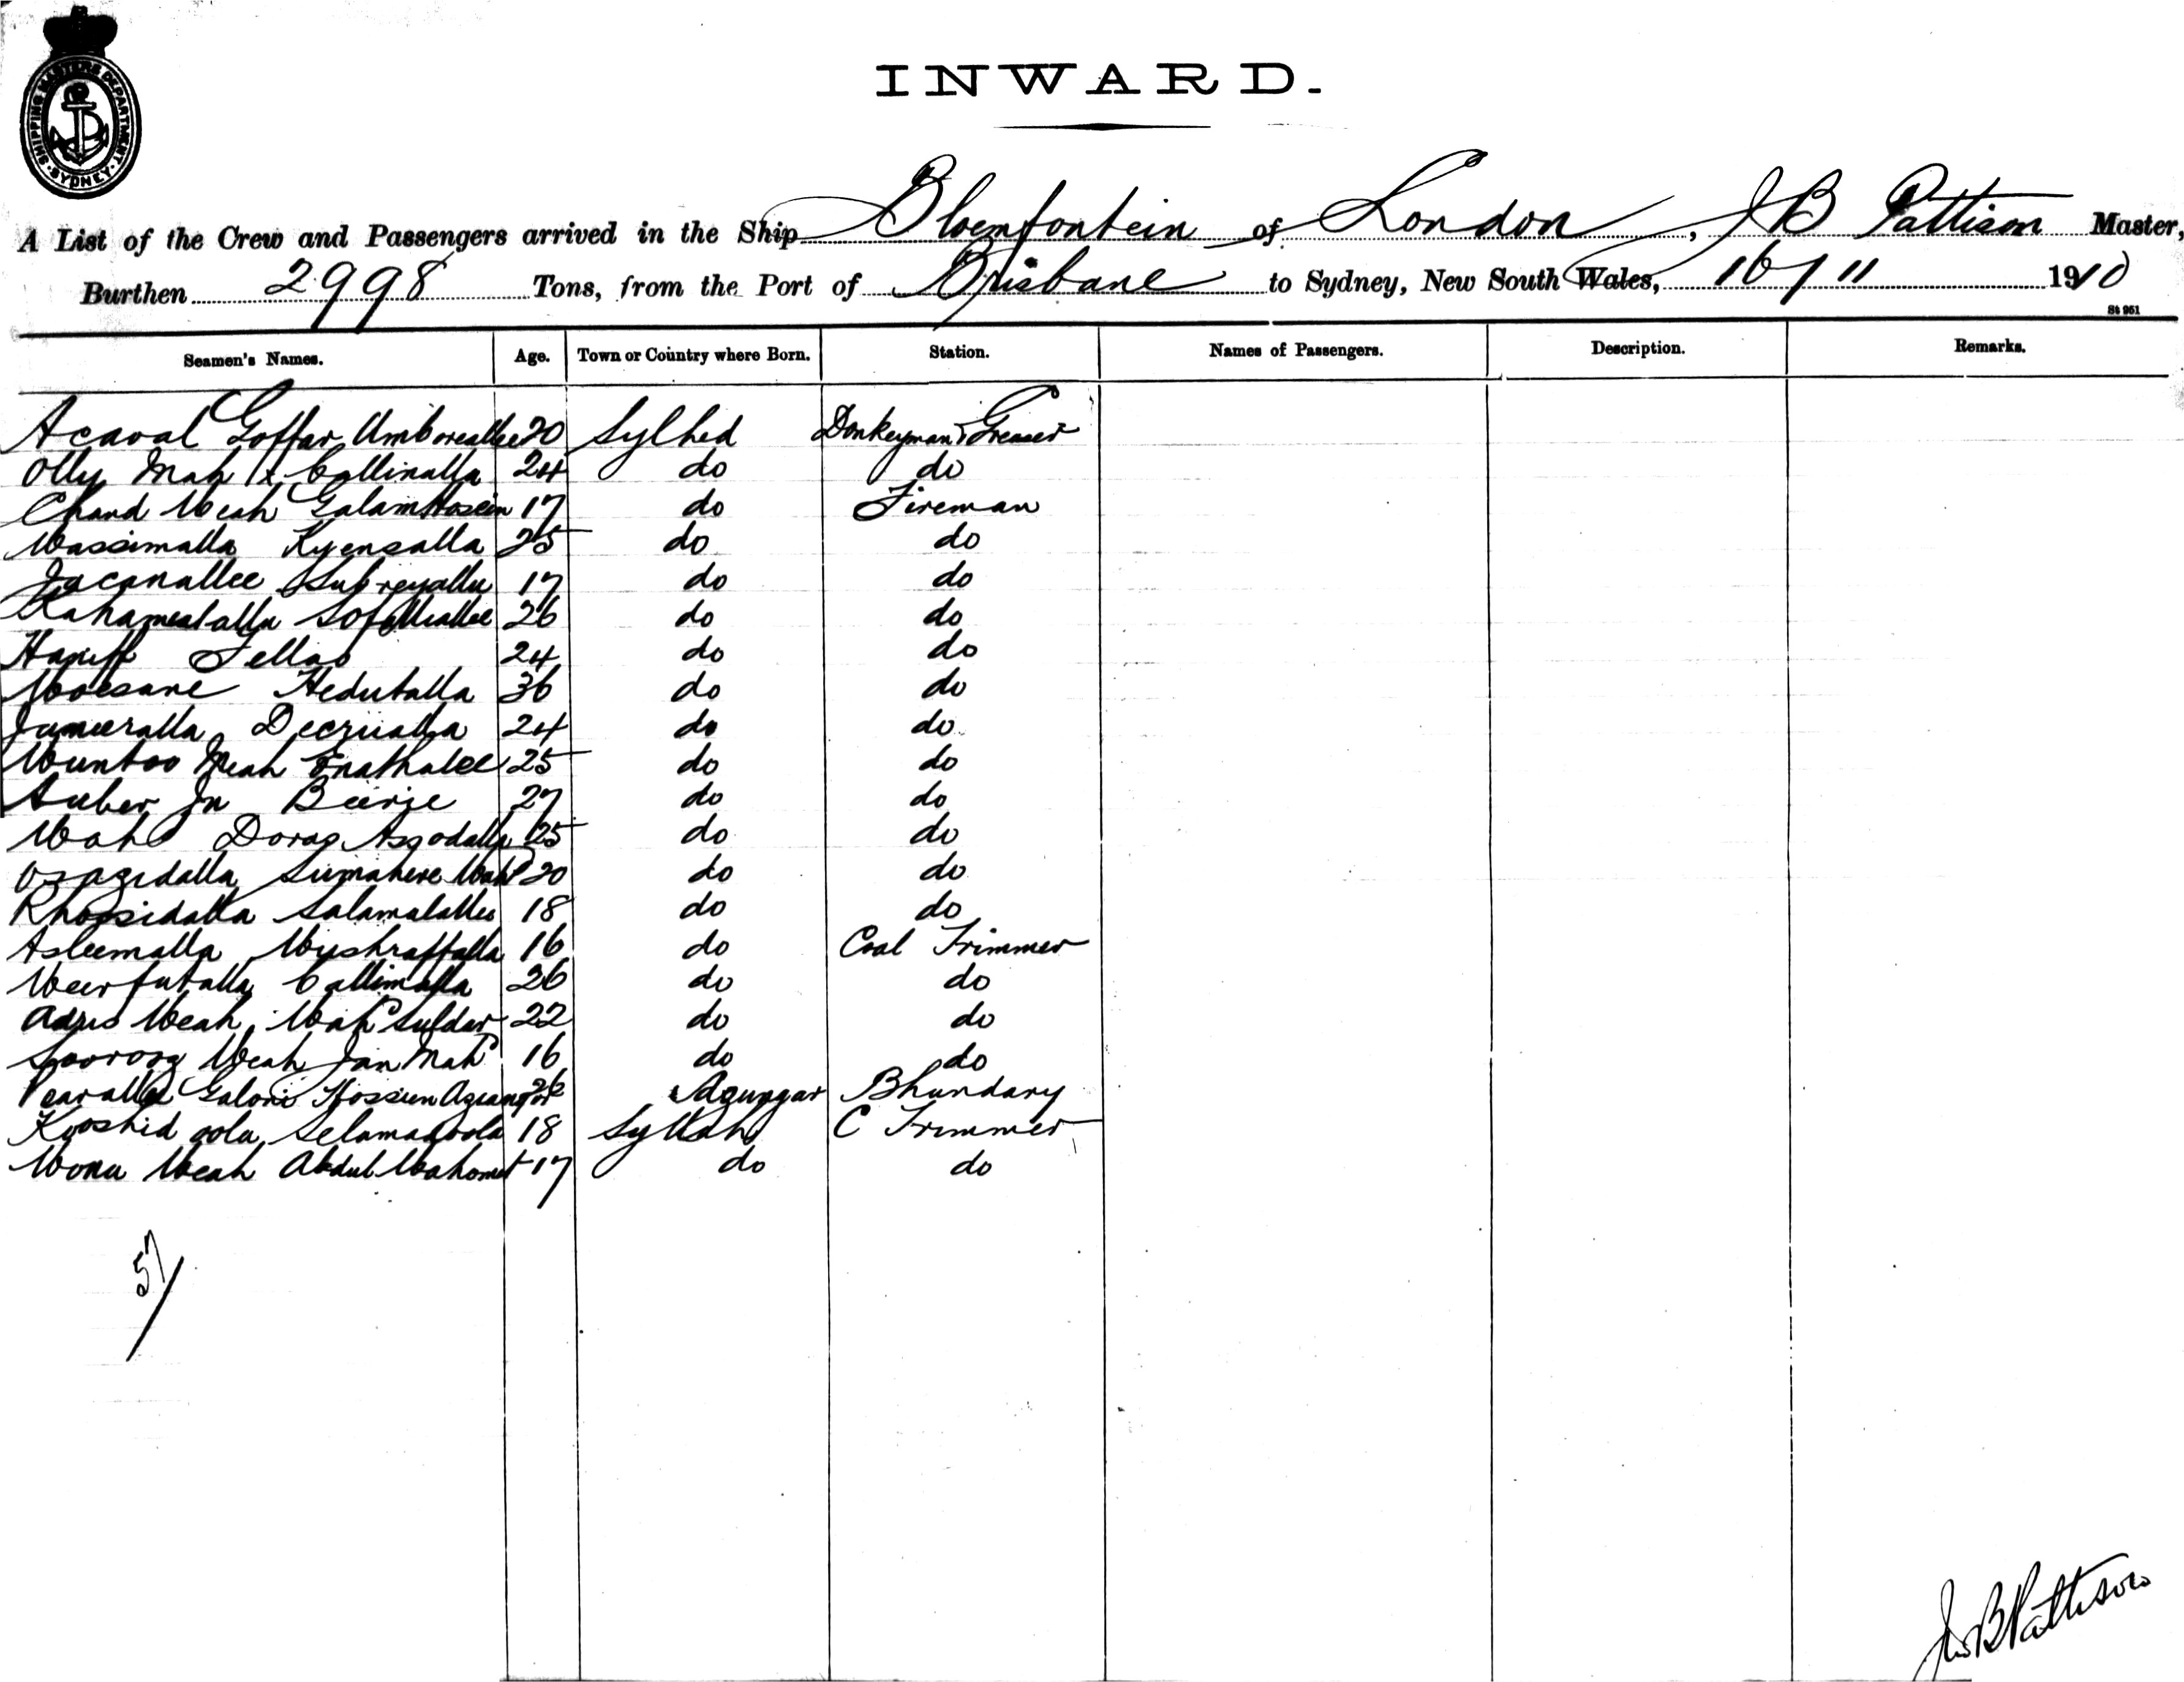 SHIPPING MASTERS DEPARTMENT. SYDNEY.
INWARD.
A List of the Crew and Passengers arrived in the Ship Bloemfontein of London, J B Pattison Master,
Burthen 2998 Tons, from the Port of Brisbane to Sydney, New South Wales, 16/11 1910
St 951
Seamen's Names. Age. Town or Country where Born. Station. Names of Passengers. Description. Remarks.
Acaval Goffar Amboreallee 20 Sylhed Donkeyman & Greaser
Olly Mah x Callinalla 24 do do
Chand Meah Galam Hosein 17 do Fireman
Massimalla Kyensalla 25 do do
Jacanallee Subreyallu 17 do do
26 do do
Haniff Fellao 24 do do
Moesane Hedutalla 36 do do
Jumeeralla 24 do do
Muntoo Meah Enathalee 25 do do
Auber Ju Beerje 27 do do
Mahd Dorag Asgodalla 25 do do
20 do do
Salamalallee 18 do do
Asleemalla Mushraffalla 16 do Coal Trimmer
Meerfutalla Callimalla 26 do do
Adris Meah Mahd Suldar 22 do do
Meah Jan Mahd 16 do do
Galom Hossien 26 Azumgar Bhundary
Kooshid oola Selamadoola 18 Syllah C Trimmer
Monu Meah Abdul Mahomet 17 do do
51/
Jno B Pattison